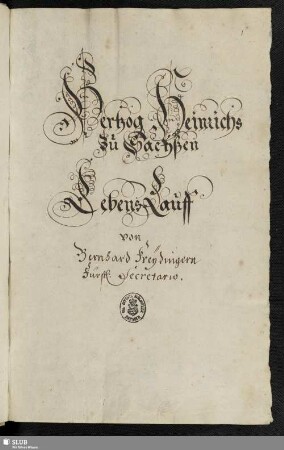 Hertzog Heinrichs
zu Sachßen
Lebens Lauff
von
Bernhard Freydingern
Fürstl. Secretario.
SLUB